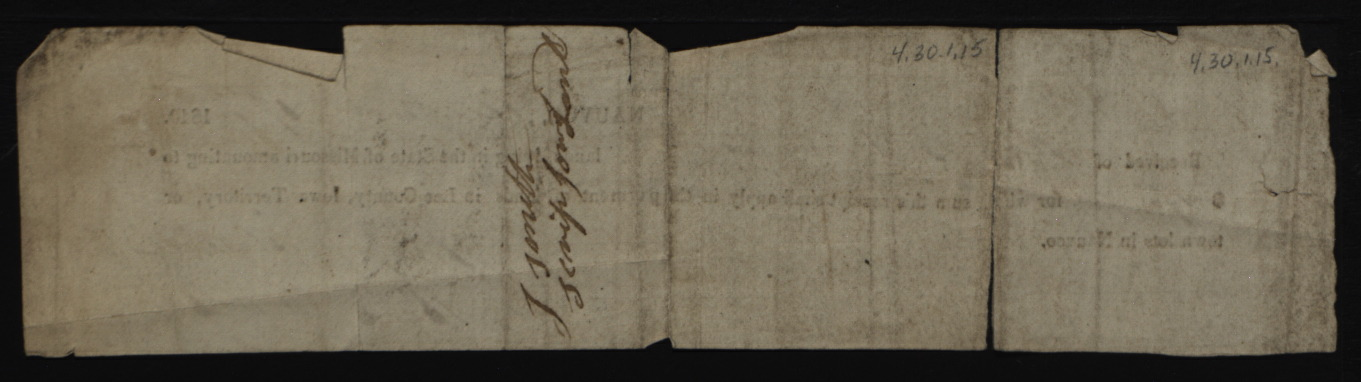 4.30.1.15
4.30.1.15.
J Smith
scrip for land
NAUVOO, 184
Received of in the State of Missouri amounting to
$ for sum this apply in the payment in Lee County, Iowa Territory, or
town lots in Nauvoo.